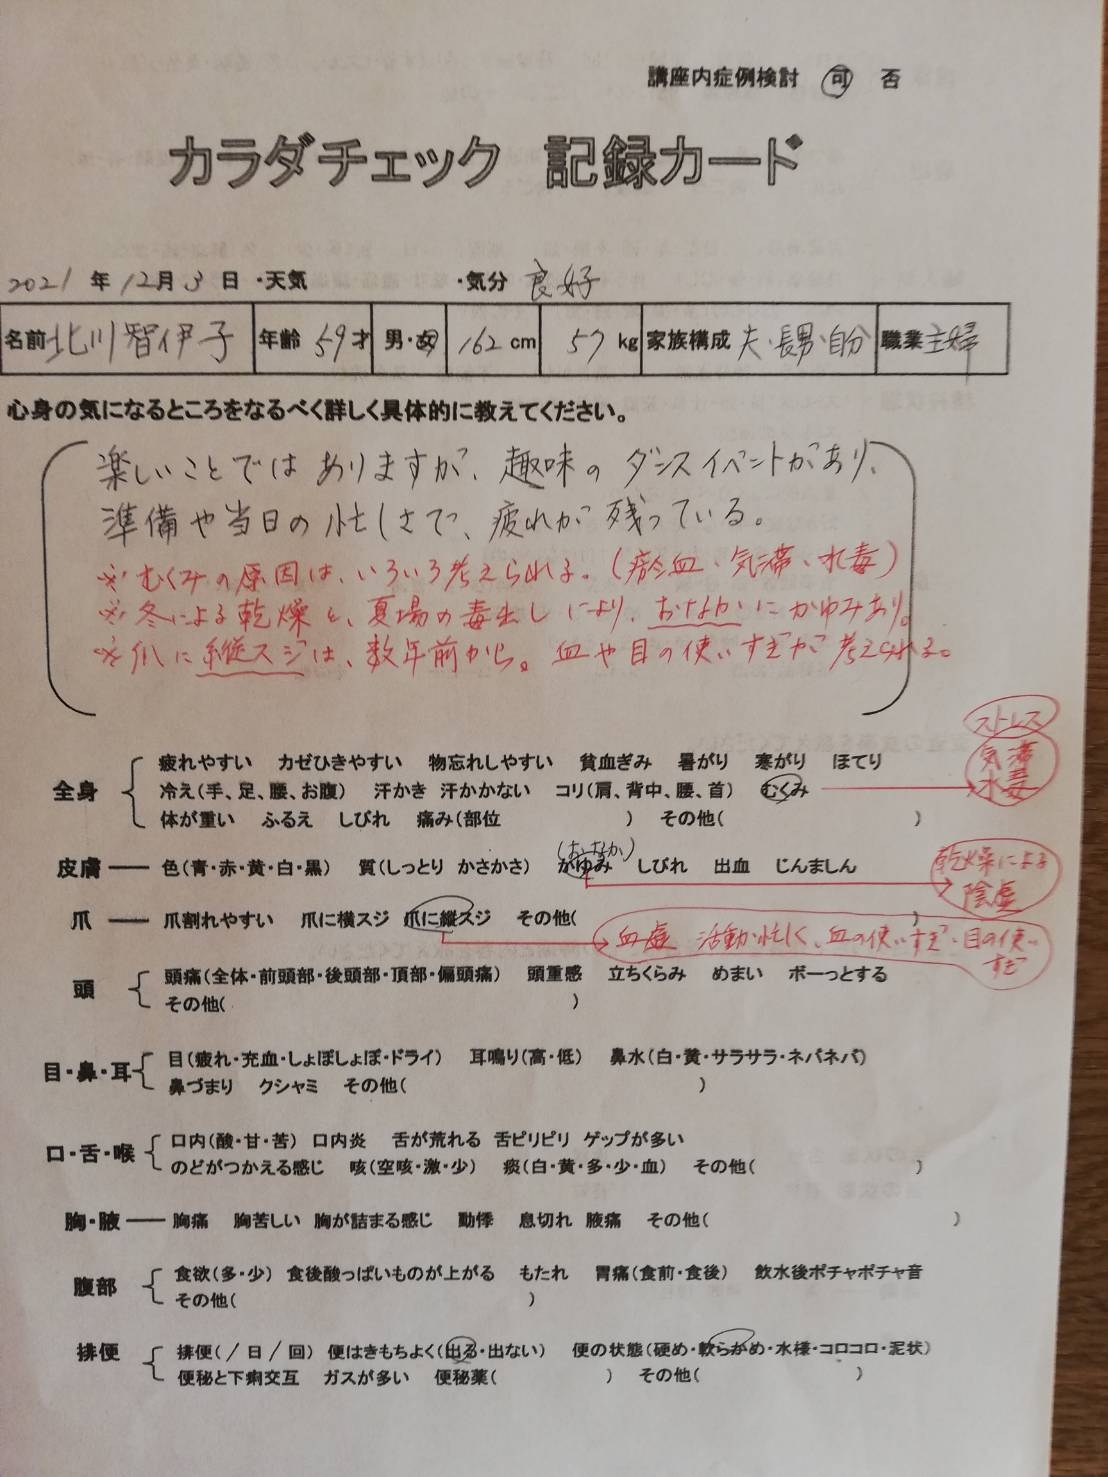 講座内症例検討 可 否
カラダチェック 記録カード
2021 年 12月 3 日 ・天気 ・気分 良好
名前 北川智伊子 年齢 59才 男・女 162 cm 57 kg 家族構成 夫・長男・自分 職業 主婦
心身の気になるところをなるべく詳しく具体的に教えてください。
楽しいことではありますが、趣味のダンスイベントがあり、
準備や当日の忙しさで、疲れが残っている。
※むくみの原因は、いろいろ考えられる。(瘀血、気滞、水毒)
※冬による乾燥と、夏場の毒出しにより、おなかにかゆみあり。
※爪に縦スジは、数年前から。血や目の使いすぎが考えられる。
ストレス
気滞
水毒
全身 疲れやすい カゼひきやすい 物忘れしやすい 貧血ぎみ 暑がり 寒がり ほてり
冷え(手、足、腰、お腹) 汗かき 汗かかない コリ(肩、背中、腰、首) むくみ
体が重い ふるえ しびれ 痛み(部位 ) その他( )
(おなか)
皮膚 色(青・赤・黄・白・黒) 質(しっとり かさかさ) かゆみ しびれ 出血 じんましん
乾燥による
陰虚
爪 爪割れやすい 爪に横スジ 爪に縦スジ その他( )
血虚 活動が忙しく、血の使いすぎ・目の使い
すぎ
頭 頭痛(全体・前頭部・後頭部・頂部・偏頭痛) 頭重感 立ちくらみ めまい ボーっとする
その他( )
目・鼻・耳 目(疲れ・充血・しょぼしょぼ・ドライ) 耳鳴り(高・低) 鼻水(白・黄・サラサラ・ネバネバ)
鼻づまり クシャミ その他( )
口・舌・喉 口内(酸・甘・苦) 口内炎 舌が荒れる 舌ピリピリ ゲップが多い
のどがつかえる感じ 咳(空咳・激・少) 痰(白・黄・多・少・血) その他( )
胸・腋 胸痛 胸苦しい 胸が詰まる感じ 動悸 息切れ 腋痛 その他( )
腹部 食欲(多・少) 食後酸っぱいものが上がる もたれ 胃痛(食前・食後) 飲水後ポチャポチャ音
その他( )
排便 排便(/日/回) 便はきもちよく(出る・出ない) 便の状態(硬め・軟らかめ・水様・コロコロ・泥状)
便秘と下痢交互 ガスが多い 便秘薬( ) その他( )